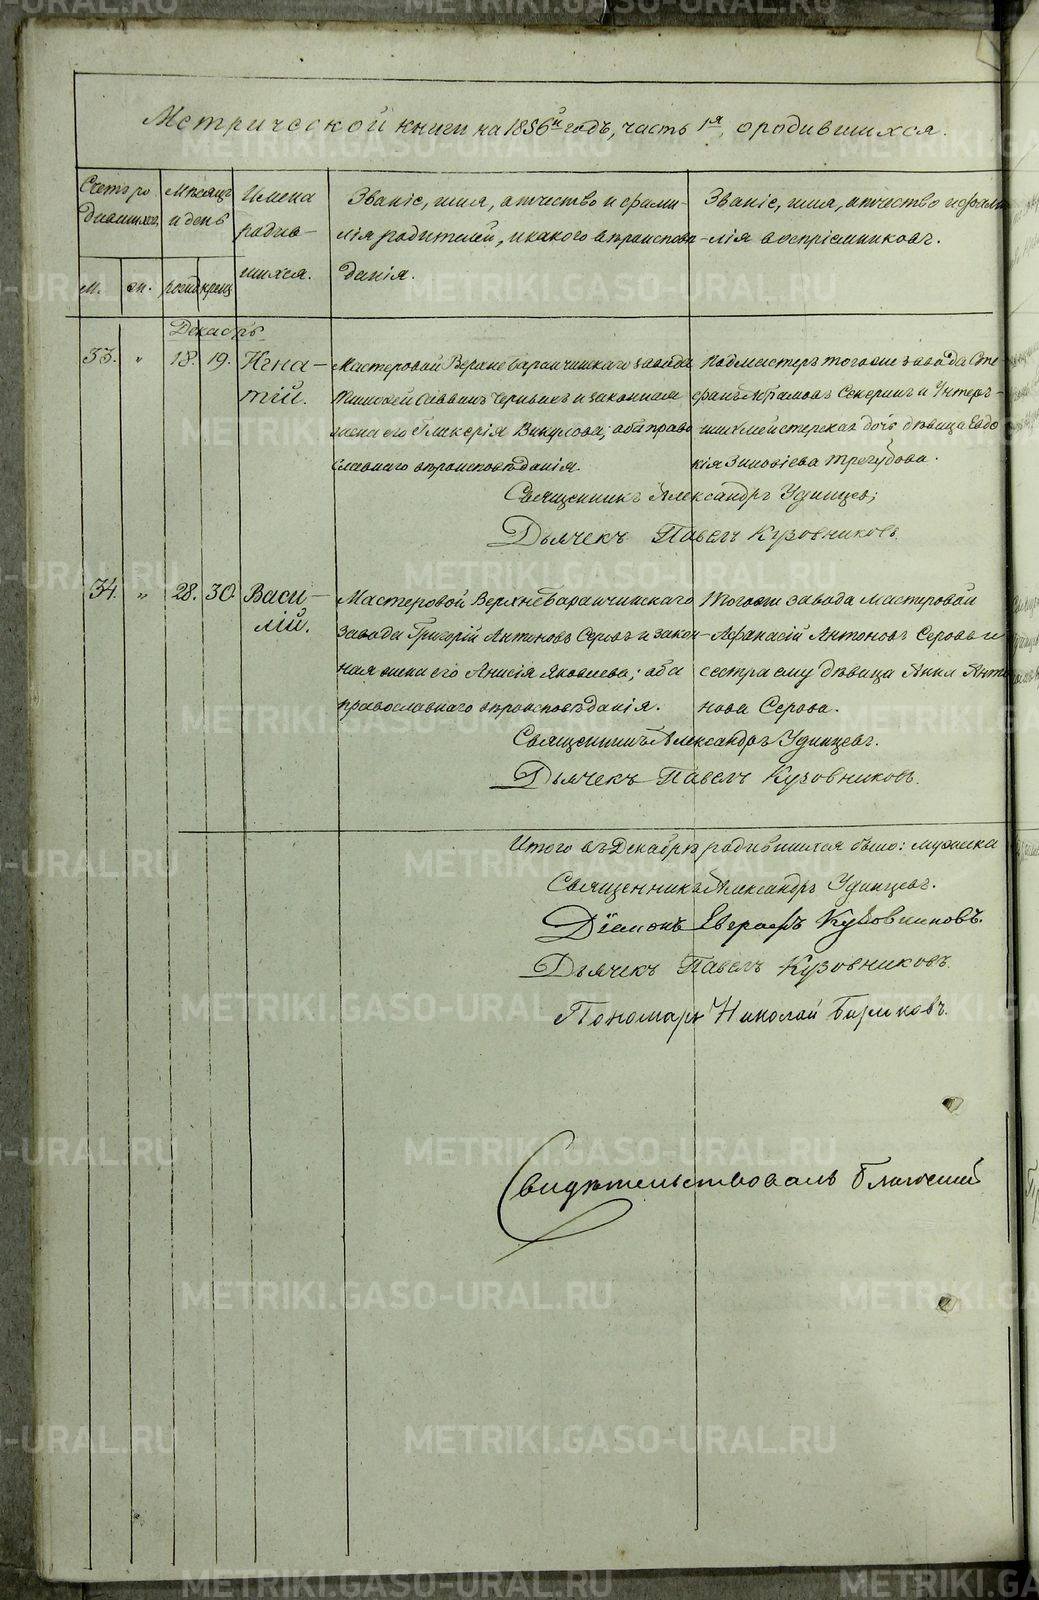 Метрической книги на 1856й годъ, часть 1я, о родившихся.
Счетъ ро
дившихся.
м.
ж.
Мѣсяцъ
и день
рожд
крещ
Имена
родив-
шихся.
Званіе, имя, отчество и фами-
лія родителей, и какого вѣроисповѣ-
данія.
Званіе, имя, отчество и фами
лія воспріемниковъ.
Декабрь
33. " 18. 19. Игна-
тій.
Мастеровой Верхнебаранчинскаго завода
Тимофей Саввинъ и законная
жена его Гликерія Викулова; оба право
славнаго вѣроисповѣданія.
Подмастеръ тогоже завода Сте
фанъ Абрамовъ Секеринъ и Унтеръ-
шихмейстерская дочь дѣвица Евдо
кія Зиновіева Трегубова.
Священникъ Александръ Удинцев;
Дьячекъ Павелъ Кузовниковъ.
34. " 28. 30. Васи-
лій.
Мастеровой Верхнебаранчинскаго
завода Григорій Антоновъ Серовъ и закон-
ная жена его Анисія Яковлева; оба
православнаго вѣроисповѣданія.
Тогоже завода мастеровой
Афанасій Антоновъ Серовъ и
сестра ему дѣвица Анна Анто
нова Серова.
Священникъ Александръ Удинцевъ.
Дьячекъ Павелъ Кузовниковъ.
Итого въ Декабрѣ родившихся было: мужеска
Священникъ Александръ Удинцевъ.
Діаконъ Кузовниковъ.
Дьячекъ Павелъ Кузовниковъ.
Пономарь Николай Бирюковъ.
Свидѣтельствовалъ Благочинный
METRIKI.GASO-URAL.RU